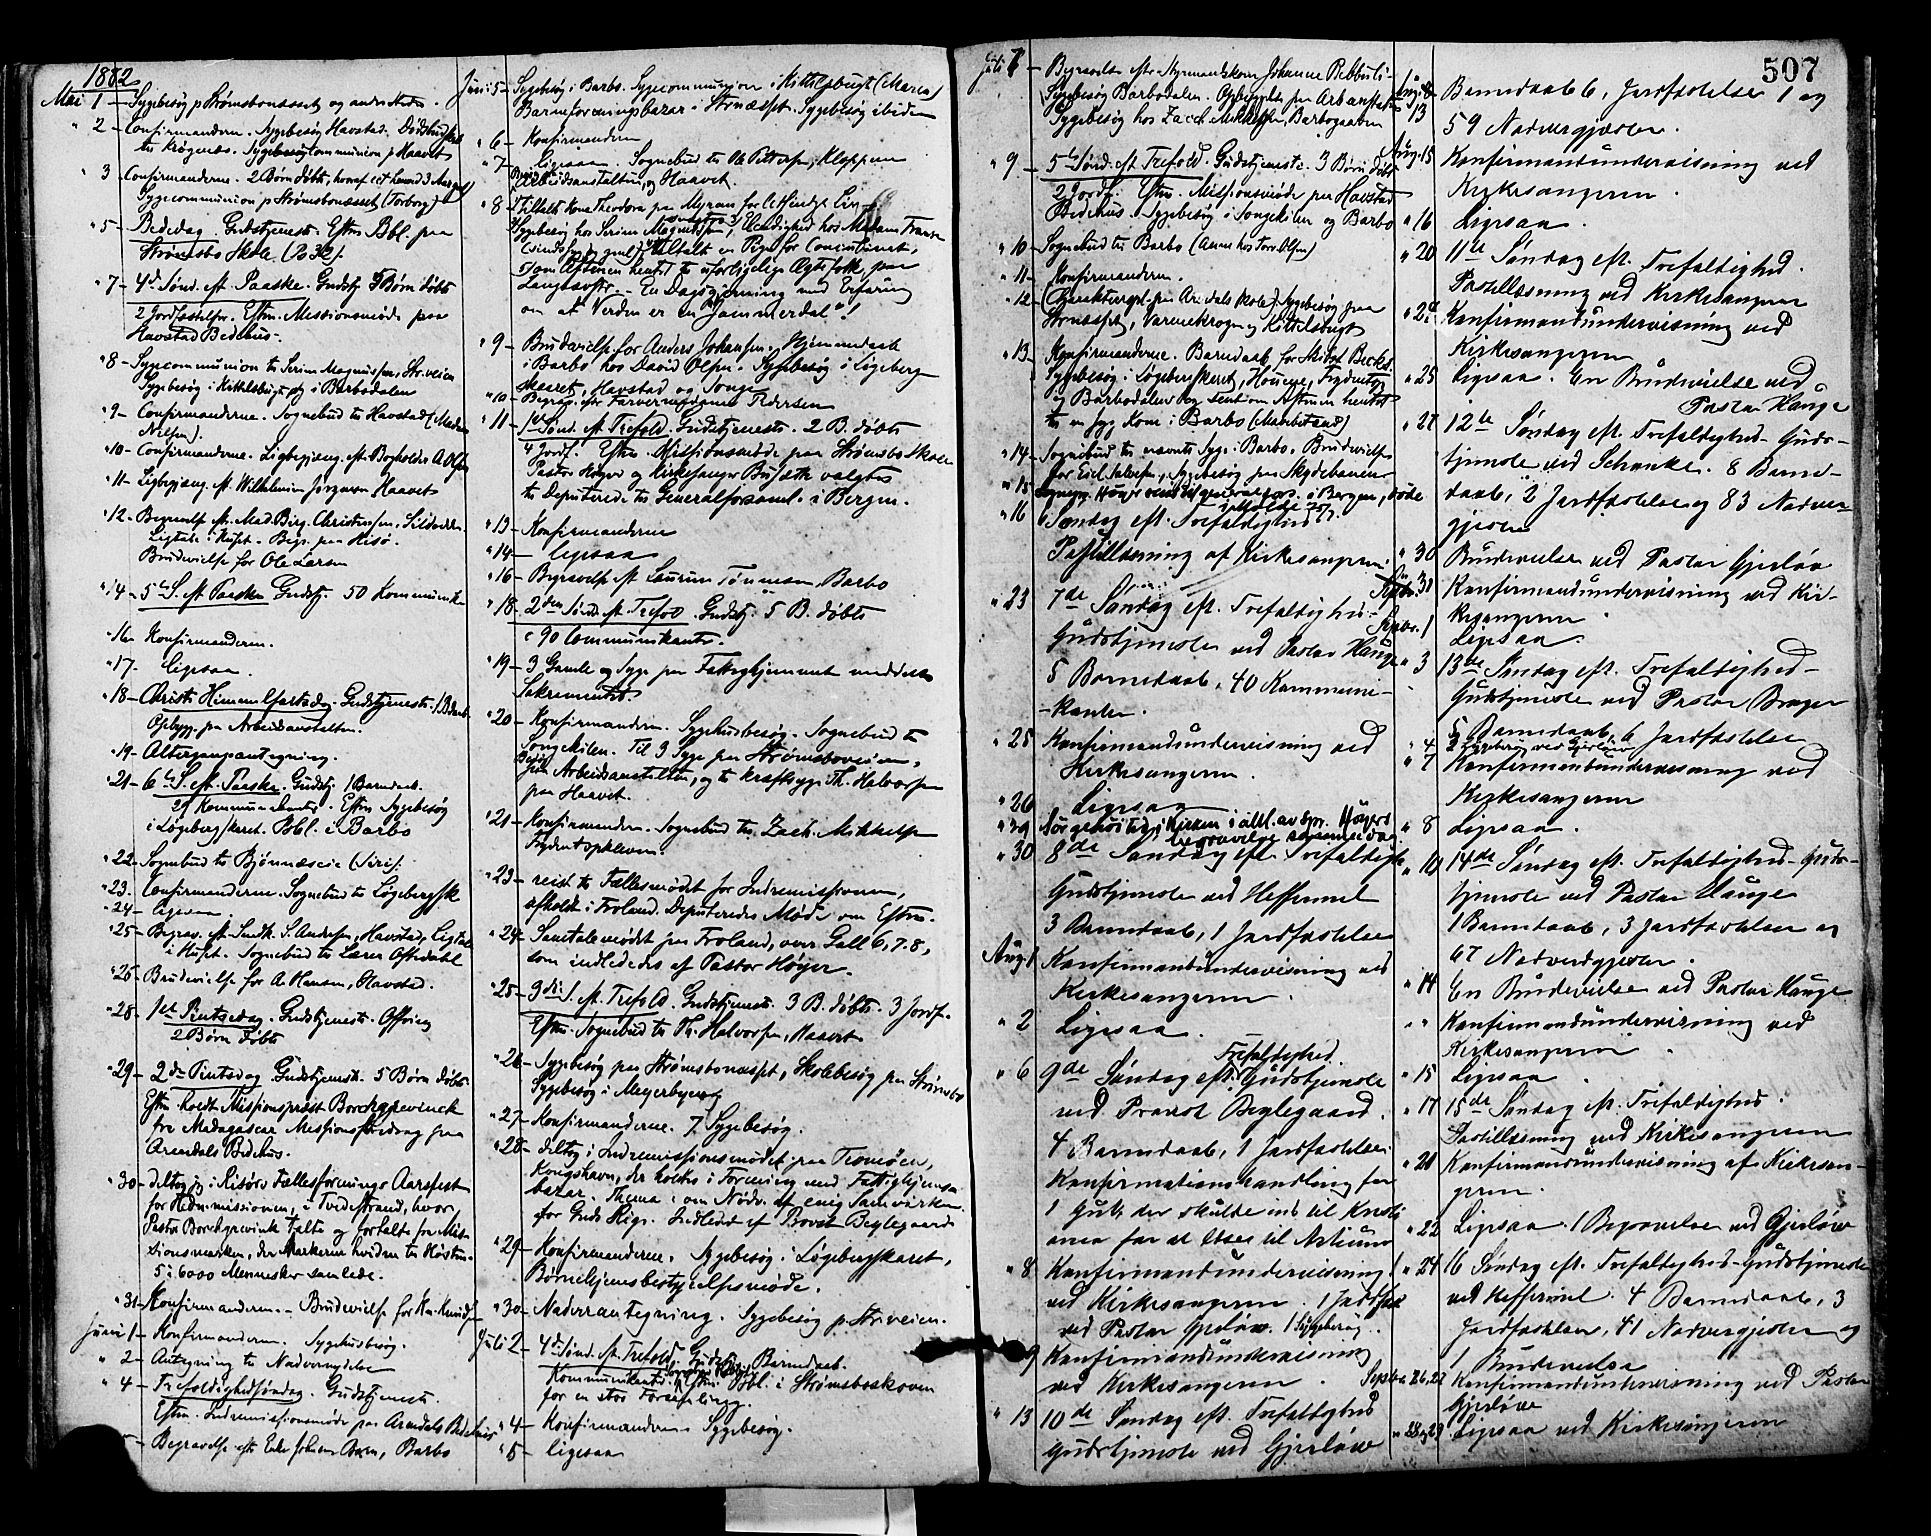 1882
Mai 1 - Sygebesøg p Strømsbonesset og andre Steder.
" 2 - Confirmanderne. Sygebesøg Havstad. Dødsbudskab
til Krøgenes. Sygebesøg Communion p Haavet
" 3 - Confirmanderne. 2 Børn døbte, hvoraf eet
Sygecommunion p Strømsbonæsset (Torborg)
" 5 - Bededag. Gudstjeneste. Eftm Bbl. paa
Strømsbo Skole
" 7 - 4de Sønd. eft. Paaske. Gudstj. Børn døbte
2 Jordfæstelser. Eftm. Missionsmøde paa
Havstad Bedehus.
" 8 - Sygecommunion til Serine Magnussen, Str.veien
Sygebesøg i Kittelsbugt og i Barbodalen
" 9 - Confirmanderne. Sognebud til Havstad (Madam
Nilsen).
" 10 - Confirmanderne. Ligbegjæng. eft. Bogholder A Olsen
" 11 - Ligbegjæng. eft. Wilhelmine Jørgensen Haavet
" 12 - Begravelse eft. Mad. Birg. Christensen,
Ligtale i Huset. Begr. paa Hisø.
Brudevielse for Ole Larsen
" 14 - 5te S. eft Paaske Gudstj. 50 Kommunik.
" 16 - Konfirmanderne.
" 17 - ligesaa
" 18 - Christi Himmelfartsdag. Gudstjeneste. 1 Barned.
Opbygg. paa Arbeidsanstalten.
" 19 - Altergangsantegning.
" 21 - 6te S. eft. Paaske. Gudstj. 1 Barnedaab.
29 Kommunikanter. Eftm Sygebesøg
i Løgebergskaret. Bbl. i Barbo
" 22 - Sognebud til Bjønnæs (Siri).
" 23 - Confirmanderne. Sognebud til Løgebergsk
" 24 - ligesaa
" 25 - Begrav. eft. Snedk. S. Andersen, Havstad, Ligtale
i Huset. Sognebud til Lærer Oftedahl
" 26 - Brudevielse for A Hansen, Havstad.
" 28 - 1ste Pintsedag. Gudstjeneste. Offring
2 Børn døbte
" 29 - 2den Pintsdag Gudstjeneste. 5 Børn døbte
Eftm holdt Missionsprest Borchgrevinck
fra Madagascar Missionsforedrag paa
Arendals Bedehus.
" 30 - deltog jeg i Risørs Fællesforenings Aarsfest
for Hednemissionen, i Tvedestrand, hvor
Pastor Borchgrevink talte og fortalte fra Mis-
sionsmarken, der Markerne hvidne til Høsten.
5 à 6000 Mennesker samlede.
" 31 - Konfirmanderne. - Brudevielse for Kn. Knudsen
Juni 1 - Konfirmanderne. Sygehusbesøg.
" 2 - Antegning til Nadverens
" 4 - Trefoldighedssøndag. Gudstjeneste.
Eftm. Indremissionsmøde paa Arendals Bedehus
Begravelse eft Enke Johanne Barbo
Juni 5 - Sygebesøg i Barbo. Sygecommunion i Kittelsbugt (Maren)
Barneforeningsbazar i Strnæsset. Sygebesøg ibiden
" 6 - Konfirmanderne
" 7 - ligesaa. Sognebud til Ole Pettersen, Kloppene
Besøg Arbeidsanstalten, og Haavet.
" 8 - Tiltalt Kone Theodora paa Myren for
Sygebesøg hos Serine Magnussen, Elendighed hos Madam Franzen
(sindssyg). Tiltalt en Pige for Concubinat,
og om Aftenen hentet til uforligelige Ægtefolk paa
Langsæter. - En Dagsgjerning med Erfaring
om at Verden er en "Jammerdal"!
" 9 - Brudevielse for Anders Johansen, Hjemmedaab
i Barbo hos David Olsen. Sygebesøg i Løgeberg-
skaret, Havstad og Songe
" 10 - Begrav. eft Farver Pedersen
" 11 - 1ste Sønd. eft Trefold. Gudstjeneste. 2 B. døbte
4 Jordf. Eftm. Missionsmøde paa Strømsbo Skole
Pastor Høyer og Kirkesanger Bufæth valgtes
til Deputerede til Generalforsaml. i Bergen.
" 13 - Konfirmanderne
" 14 - ligesaa
" 16 - Begravelse eft Laurine Tønnesen, Barbo
" 18 - 2den Sønd. eft Trefold. Gudstj. 5 B. døbte
c 90 Communikanter.
" 19 - 3 Gamle og Syge paa Fattighjemmet meddeelt
Sakramentet.
" 20 - Konfirmanderne. Sygehusbesøg. Sognebud til
Songekilen. Til 3 Syge paa Strømsboveien,
Besøg paa Arbeidsanstalten, og til kræftsyge Th. Halvorsen
paa Haavet.
" 21 - Konfirmanderne. Sognebud til Zach. Mikkelsen
" 23 - reist til Fællesmødet for Indremissionen,
afholdt i Froland. Deputeredes Møde om Eftm.
" 24 - Samtalemødet paa Froland, over Gall 6, 7. 8,
som indlededes af Pastor Høyer.
" 25 - 3die S. eft Trefold. Gudstjeneste. 3 B. døbte. 3 Jordf.
Eftm. Sognebud til Th. Halvorsen, Haavet.
" 26 - Sygebesøg paa Strømsbonæsset, Skolebesøg paa Strømsbo
Sygebesøg i Meyerbyen
" 27 - Konfirmanderne. 7 Sygebesøg.
" 28 - deltog i Indremissionsmødet paa Tromøen,
Kongshavn, der holdtes i Forening med Fattighjems-
bazar. Thema: om Nødv. af enig Samvirken
for Guds Rige. Indledet af Provst Beglegaard
" 29 - Konfirmanderne. Sygebesøg i Løgebergskaret,
Børnehjemsbestyrelsesmøde.
" 30 - Nadverantegning. Sygebesøg p. Str.veien.
Juli 2 - 4de Sønd. eft Trefold. Gudstj. Barnedaab.
Kommunikanter. Eftm. Bbl. i Strømsboskoven
for en stor Forsamling.
" 4 - Konfirmanderne Sygebesøg.
" 5 - ligesaa
507
Juli 7 - Begravelse eft Styrmandskone Johanne
Sygebesøg Barbodalen. Opbyggelse paa Arbanstalten
Sygebesøg hos Zach Mikkelsen, Barbogaarden
" 9 - 5te Sønd. eft Trefold. Gudstjeneste. 3 Børn døbt
2 Jordf. Eftm. Missionsmøde paa Havstad
Bedehus. Sygebesøg i Songekilen og Barbo
" 10 - Sognebud til Barbo (Anne hos Tore Olsen)
" 11 - Konfirmanderne.
" 12 - Sygebesøg paa
Strnæsset, Varmekrogen og Kittelsbugt
" 13 - Konfirmanderne. Barnedaab for
Sygebesøg i Løgebergskaret,
og Barbodalen og sent om Aftenen hentet
til en syg Kone i Barbo
" 14 - Sognebud til nævnte Syge i Barbo. Brudevielse
for Emil Sygebesøg paa Skydebanen
" 15 Sognepr. Höyer reist til generalfors. i Bergen, døde
" 16 6 Søndag eft. Trefoldighed
Postillæsning af Kirkesangeren.
" 23 7de Søndag eft. Trefoldighed -
Gudstjeneste ved Pastor Hauge
5 Barnedaab, 40 Kommuni-
-kanter.
" 25 Konfirmandundervisning ved
Kirkesangeren.
" 26 Ligesaa
" 29 Sørgehøitid i Kirken i anl. av spr. Höyers
begravelse samme dag
" 30 8de Søndag eft Trefoldigh.
Gudstjeneste ved Heffermel
3 Barnedaab, 1 Jordfæstelse
Aug. 1 Konfirmandundervisning ved
Kirkesangeren.
" 2 Ligesaa.
" 6 9de Søndag eft. Trefoldighed Gudstjeneste
ved Provst Beglegaard.
4 Barnedaab, 1 Jordfæstelse.
Konfirmationshandling for
1 Gut, der skulde ind til Kristi-
ania for at læse til Artium
" 8 Konfirmandundervisning
ved Kirkesangeren. 1 Jordfæst
ved Pastor Gjerløw. 1 Sygebesøg.
" 9 Konfirmandundervisning
ved Kirkesangeren.
" 13 10de Søndag eft. Trefoldighed
Gudstjeneste ved Gjerløw
Aug. 13 Barnedaab 6, Jordfæstelse 1 og
59 Nadvergjæster.
Aug. 15 Konfirmandundervisning ved
Kirkesangeren.
" 16 Ligesaa.
" 20 11te Søndag eft. Trefoldighed.
Postillæsning ved Kirkesangeren
" 22 Konfirmandundervisning ved
Kirkesangeren
" 25 Ligesaa. En Brudevielse ved
Pastor Hauge
" 27 12te Søndag eft. Trefoldighed - Guds-
tjeneste ved Schanke. 8 Barne-
daab, 2 Jordfæstelse og 83 Nadver-
gjæster
" 30 Brudevielse ved Pastor Gjerløw
" 31 Konfirmandundervisning ved Kir-
kesangeren
Septbr. 1 Ligesaa.
" 3 13de Søndag eft. Trefoldighed -
Gudstjeneste ved Pastor
5 Barnedaab, 6 Jordfæstelser
" 4 2 Sygebesøg ved Gjerløw
" 7 Konfirmandundervisning ved
Kirkesangeren
" 8 Ligesaa.
" 10 14de Søndag eft. Trefoldighed - Guds-
tjeneste ved Pastor Hauge
1 Barnedaab, 3 Jordfæstelser og
67 Nadvergjæster.
" 14 En Brudevielse ved Pastor Hauge
" " Konfirmandundervisning ved
Kirkesangeren.
" 15 Ligesaa
" 17 15de Søndag eft. Trefoldighed.
Postillæsning ved Kirkesangeren
" 21 Konfirmandundervisning af Kirkesan-
geren.
" 22 Ligesaa. 1 Begravelse ved Gjerløw
" 24 16 Søndag eft. Trefoldighed - Gudstjeneste
ved Heffermel. 4 Barnedaab, 3
Jordfæstelser, 41 Nadvergjæster og
1 Brudevielse
Septbr. 26, 27 Konfirmandundervisning ved Pastor
Gjerløw
" 28 og 29 Ligesaa ved Kirkesangeren